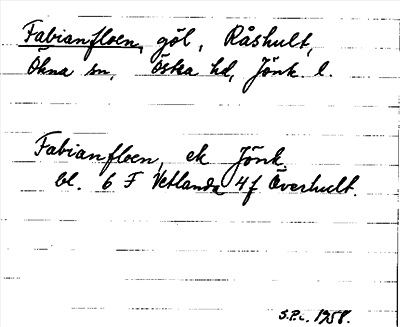 Fabianfloen, göl, Råshult,
Ökna sn, Östra hd, Jönk. l.
Fabianfloen, ek Jönk.
bl. 6 F Vetlanda 4f Överhult.
S.P.c. 1958.